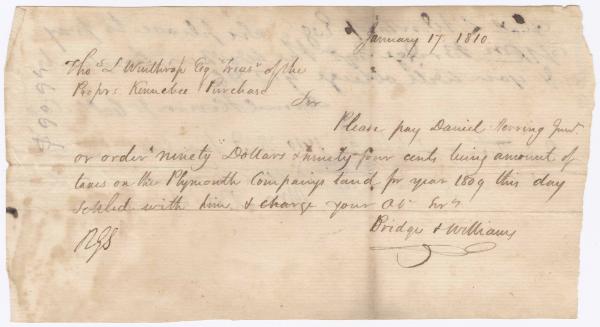 January 17. 1810.
Thos L Winthrop Esqr Treasr of the
Proprs Kennebec Purchase
Sir
Please pay Daniel Junr.
or order ninety Dollars & ninety four cents being amount of
taxes on the Plymouth Companys land for year 1809 this day
settled with him & charge your Ob. Servts
Bridge & Williams